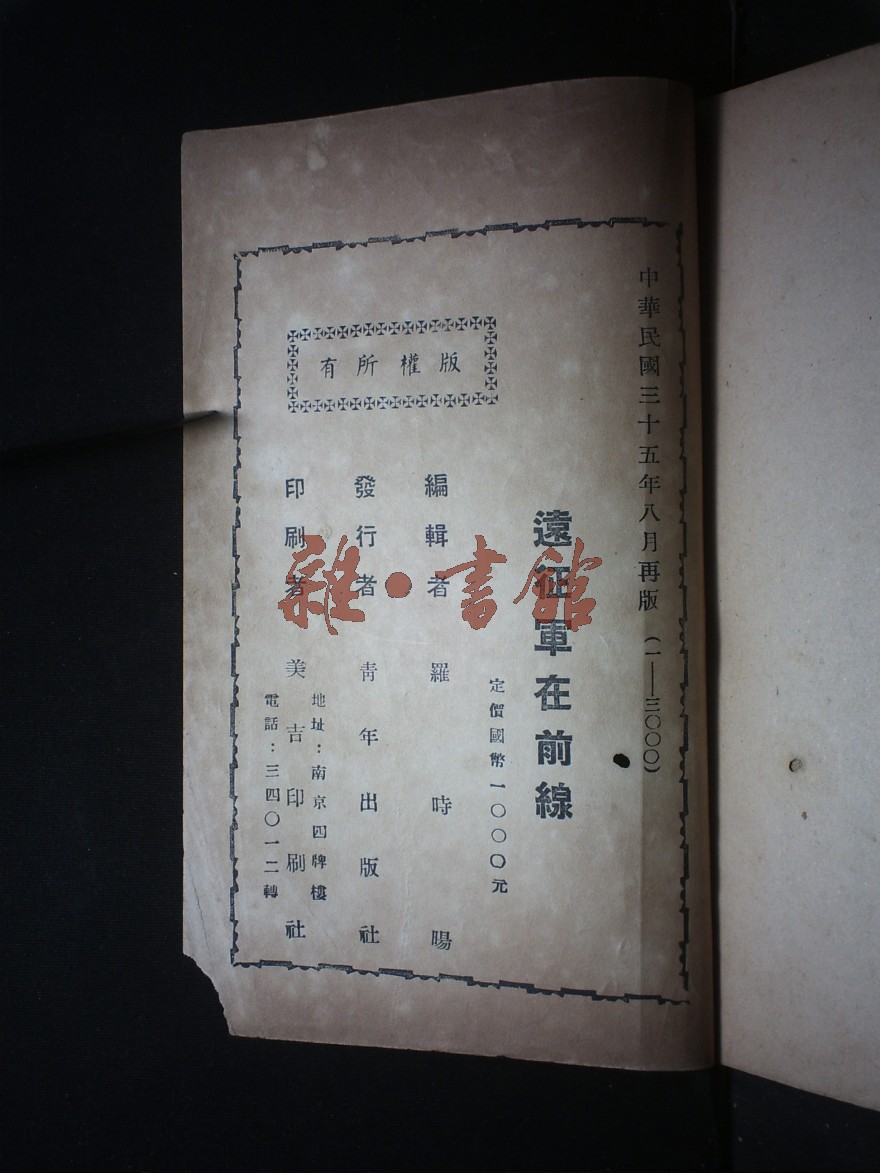 中華民國三十五年八月再版（一——三〇〇〇）
遠征軍在前線
定價國幣一〇〇〇元
版權所有
編輯者 羅時暘
發行者 青年出版社
地址：南京四牌樓
印刷者 美吉印刷社
電話：三四〇一二轉
雜·書館